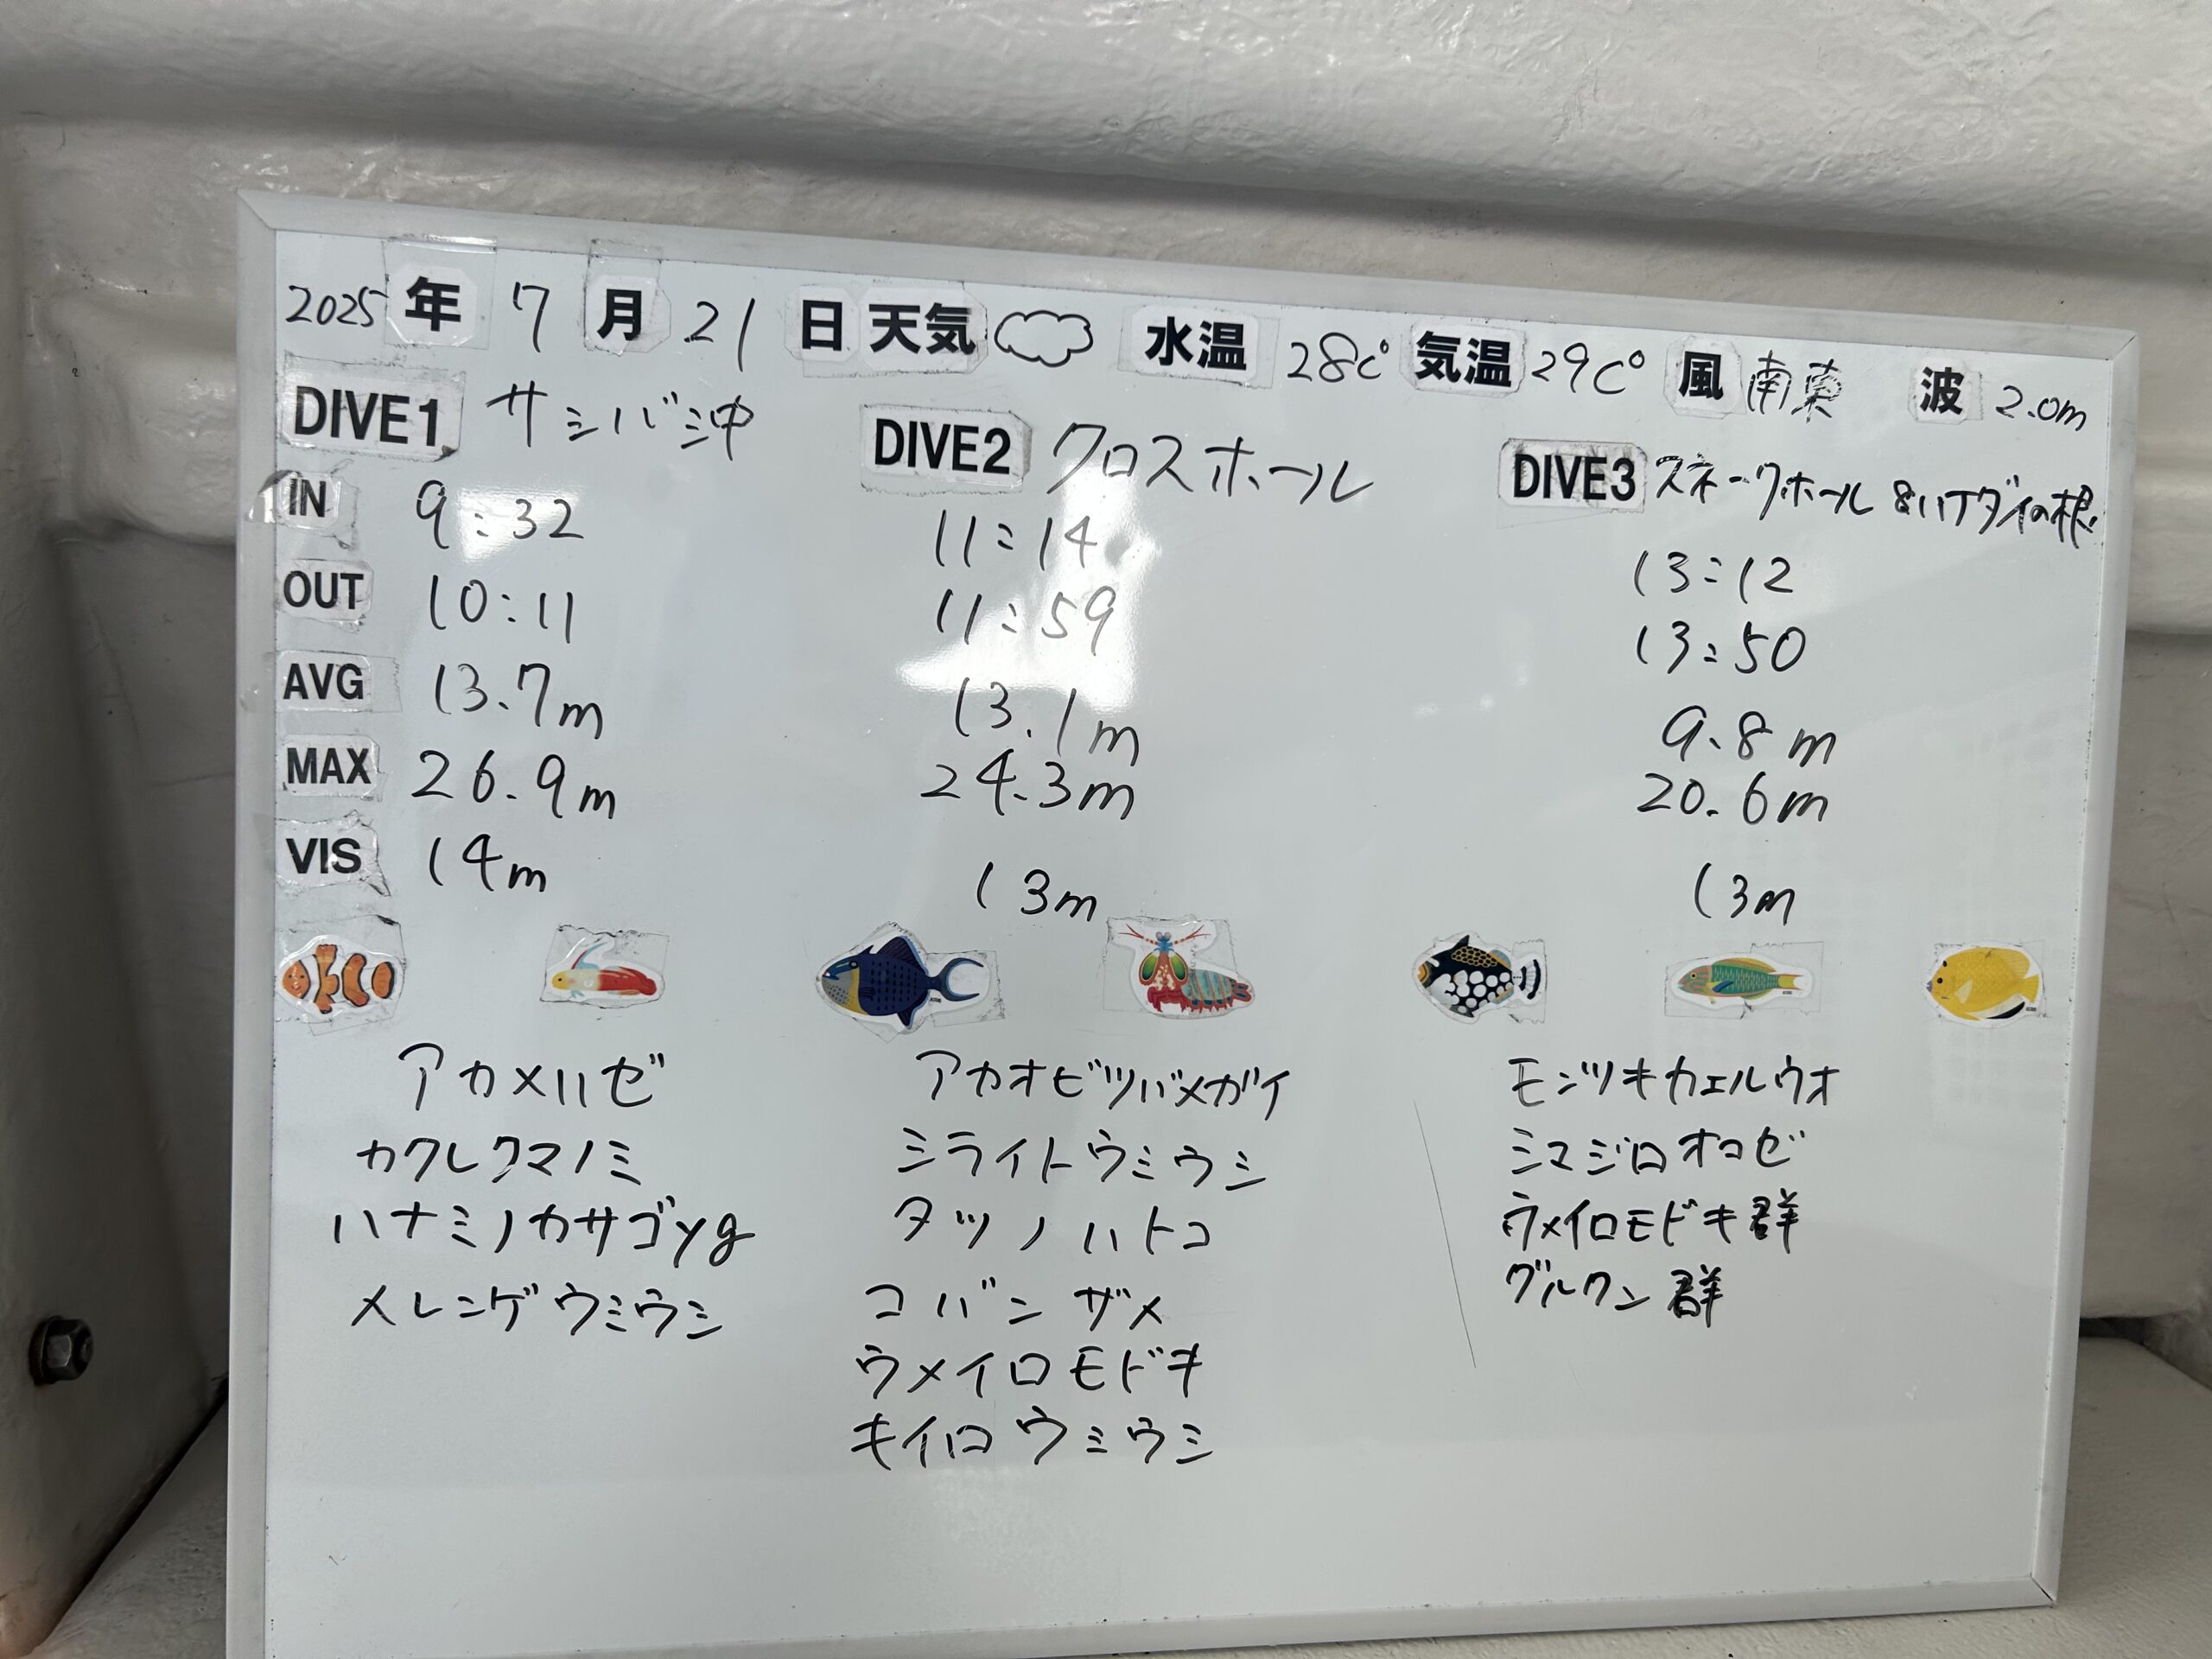 2025 年 7 月 21 日 天気 水温 28C° 気温 29C° 風 南東 波 2.0m
DIVE1 サシバ沖
DIVE2 クロスホール
DIVE3 スネークホール &ハナダイの根
IN 9:32 11:14 13:12
OUT 10:11 11:59 13:50
AVG 13.7m 13.1m 9.8m
MAX 26.9m 24.3m 20.6m
VIS 14m 13m 13m
アカメハゼ
カクレクマノミ
ハナミノカサゴyg
メレンゲウミウシ
アカオビツバメガイ
ミライトウミウシ
タツノハトコ
コバンザメ
ウメイロモドキ
キイロウミウシ
モンツキカエルウオ
シマジロオコゼ
ウメイロモドキ群
グルクン群